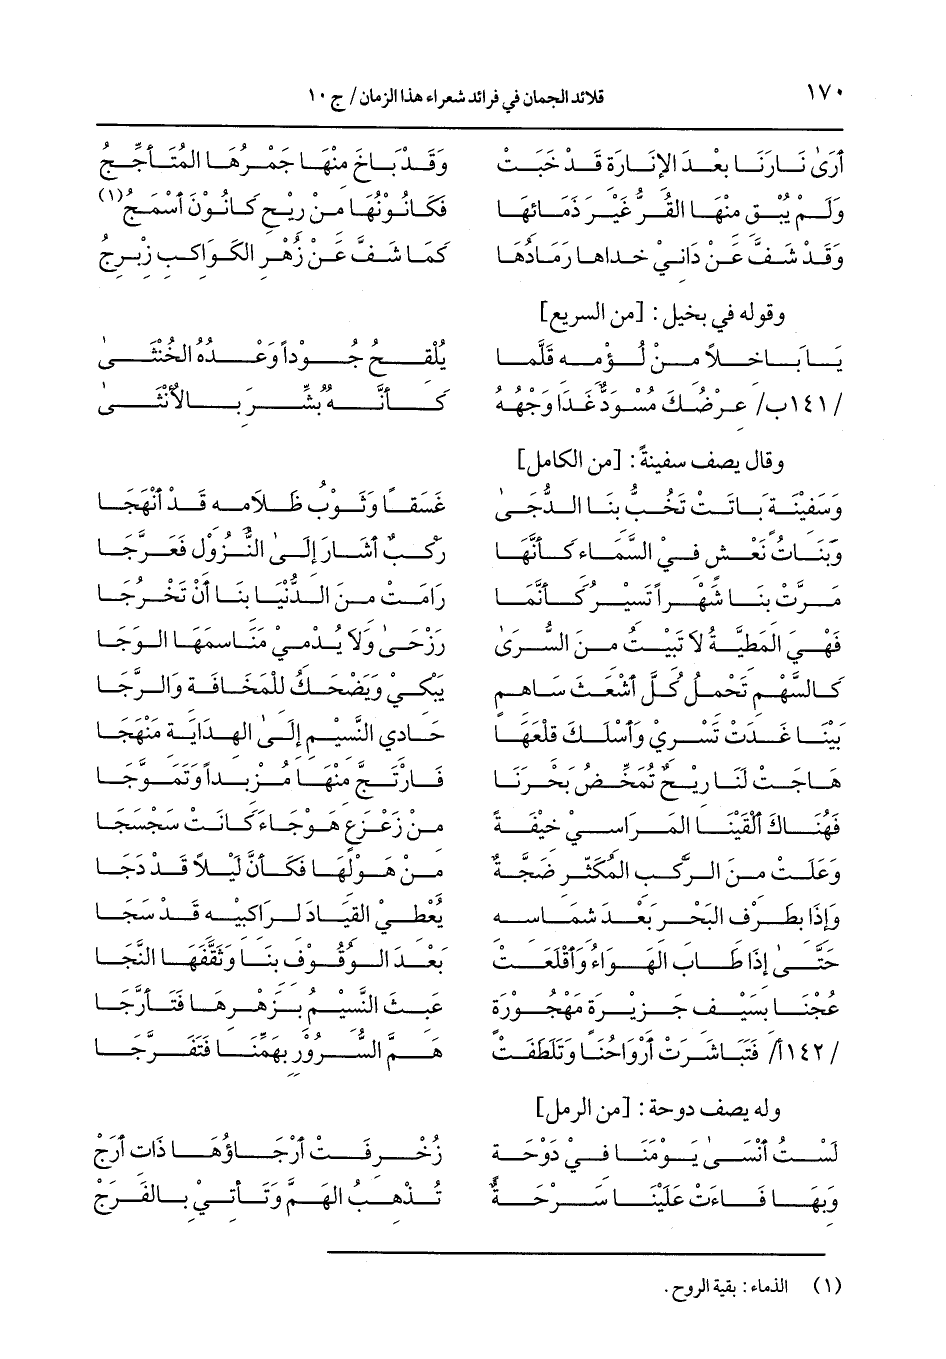 ١٧٠ قلائد الجمان في فرائد شعراء هذا الزمان/ ج ١٠
أَرَىٰ نَارَنَا بَعْدَ الإِنَارَةِ قَدْ خَبَتْ وَقَدْ بَاخَ مِنْهَا جَمْرُهَا المُتَأَجِّجُ
وَلَمْ يُبْقِ مِنْهَا القُرُّ غَيْرَ ذَمَائِهَا فَكَانُونُهَا مِنْ رِيْحِ كَانُونَ أَسْمَجُ(١)
وَقَدْ شَفَّ عَنْ دَانِي رَمَادُهَا كَمَا شَفَّ عَنْ زُهْرِ الكَوَاكِبِ زِبْرِجُ
وقوله في بخيل: [من السريع]
يَا بَاخِلاً مِنْ لُؤْمِهِ قَلَّمَا يُلْقِحُ جُوداً وَعْدُهُ الخُنْثَىٰ
/١٤١ب/ عِرْضُكَ مُسْوَدٌّ غَدَا وَجْهُهُ كَأَنَّهُ بُشِّرَ بِالأُنْثَىٰ
وقال يصف سفينةً: [من الكامل]
وَسَفِيْنَةٍ بَاتَتْ تَخُبُّ بِنَا الدُّجَىٰ غَسَقاً وَثَوْبُ ظَلَامِهِ قَدْ أَنْهَجَا
وَبَنَاتُ نَعْشٍ فِي السَّمَاءِ كَأَنَّهَا رَكْبٌ أَشَارَ إِلَىٰ النُّزُولِ فَعَرَّجَا
مَرَّتْ بِنَا شَهْراً تَسِيْرُ كَأَنَّمَا رَامَتْ مِنَ الدُّنْيَا بِنَا أَنْ تَخْرُجَا
فَهْيَ المَطِيَّةُ لَا تَبِيْتُ مِنَ السُّرَىٰ رَزْحَىٰ وَلَا يُدْمِي مَنَاسِمَهَا الوَجَا
كَالسَّهْمِ تَحْمِلُ كُلَّ أَشْعَثَ سَاهِمٍ يَبْكِي وَيَضْحَكُ لِلْمَخَافَةِ وَالرَّجَا
بَيْنَا غَدَتْ تَسْرِي وَأَسْلَكَ قِلْعَهَا حَادِي النَّسِيْمِ إِلَىٰ الهِدَايَةِ مَنْهَجَا
هَاجَتْ لَنَا رِيْحٌ تَمَخَّضُ بَحْرَنَا فَارْتَجَّ مِنْهَا مُزْبِداً وَتَمَوَّجَا
فَهُنَاكَ أَلْقَيْنَا المَرَاسِيَ خِيْفَةً مِنْ زَعْزَعٍ هَوْجَاءَ كَانَتْ سَجْسَجَا
وَعَلَتْ مِنَ الرَّكْبِ المُكَثَّرِ ضَجَّةٌ مِنْ هَوْلِهَا فَكَأَنَّ لَيْلاً قَدْ دَجَا
وَإِذَا بِطَرْفِ البَحْرِ بَعْدَ شِمَاسِهِ يُعْطِي القِيَادَ لِرَاكِبِيْهِ قَدْ سَجَا
حَتَّىٰ إِذَا طَابَ الهَوَاءُ وَأَقْلَعَتْ بَعْدَ الوُقُوفِ بِنَا وَثَقَّفَهَا النَّجَا
عُجْنَا بِسِيْفِ جَزِيْرَةٍ مَهْجُورَةٍ عَبَثَ النَّسِيْمُ بِزَهْرِهَا فَتَأَرَّجَا
/١٤٢أ/ فَتَبَاشَرَتْ أَرْوَاحُنَا وَتَلَطَّفَتْ هَمَّ السُّرُوْرُ بِهَمِّنَا فَتَفَرَّجَا
وله يصف دوحة: [من الرمل]
لَسْتُ أَنْسَىٰ يَوْمَنَا فِي دَوْحَةٍ زُخْرِفَتْ أَرْجَاؤُهَا ذَاتِ أَرَجْ
وَبِهَا فَاءَتْ عَلَيْنَا سَرْحَةٌ تُذْهِبُ الهَمَّ وَتَأْتِي بِالفَرَجْ
(١) الذماء: بقية الروح.